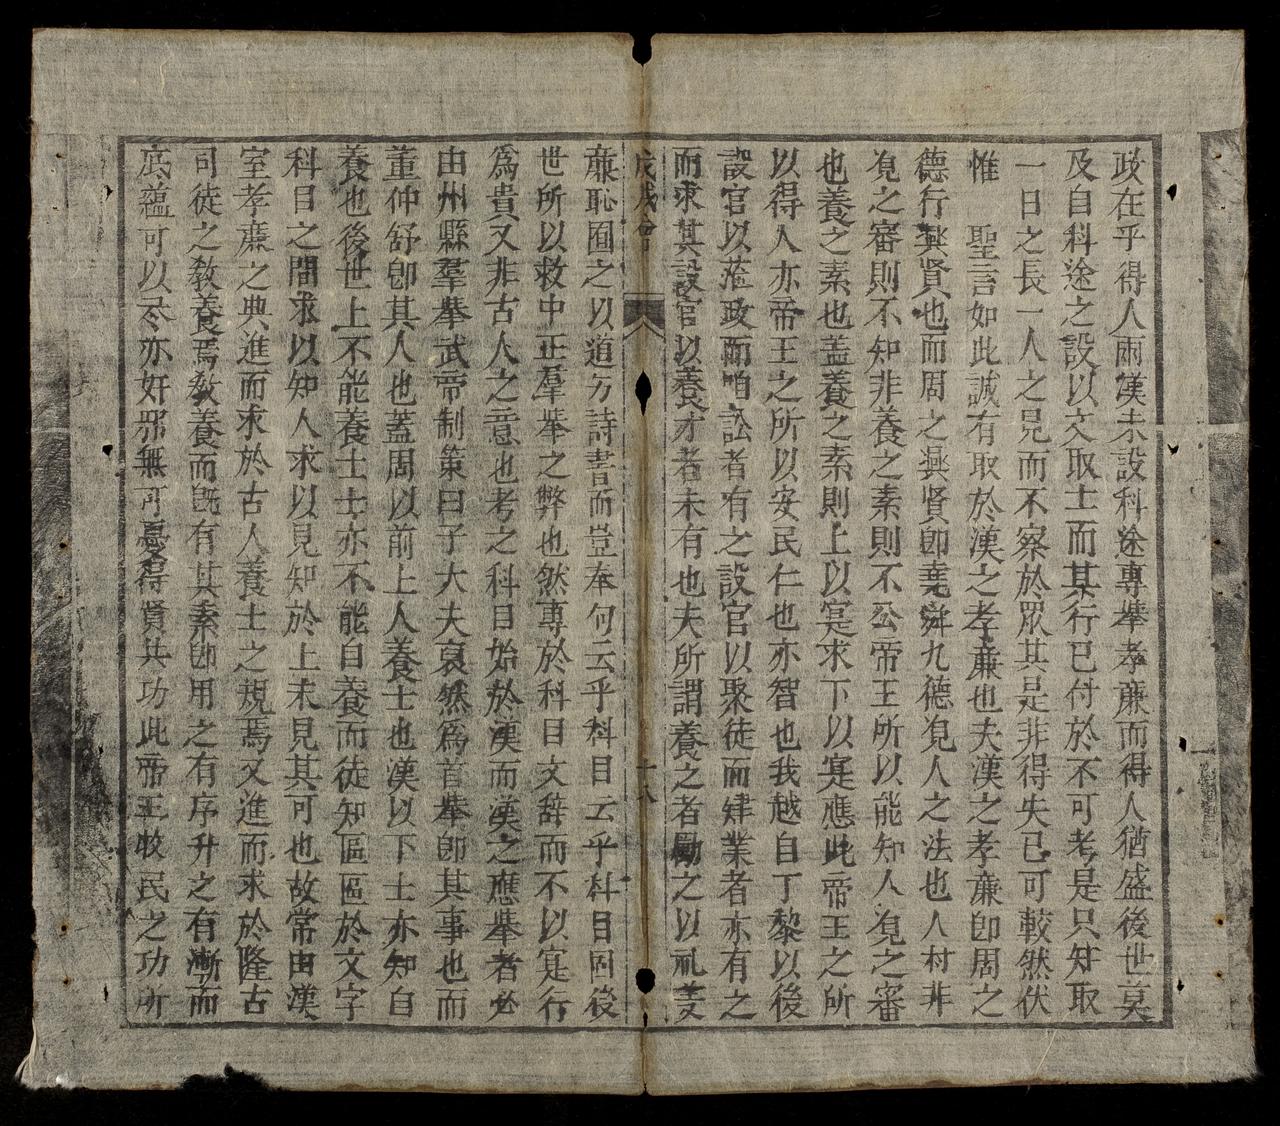 政在乎得人兩漢未設科途專舉孝廉而得人猶盛後世莫
及自科途之設以文取士而其行已付於不可考是只知取
一日之長一人之見而不察於眾其是非得失已可較然伏
惟　聖言如此誠有取於漢之孝廉也夫漢之孝廉即周之
德行興賢也而周之興賢即堯舜九德覌人之法也人材非
覌之審則不知非養之素則不公帝王所以能知人覌之審
也養之素也盖養之素則上以寔求下以寔應此帝王之所
以得人亦帝王之所以安民仁也亦智也我越自丁黎以後
設官以蒞政而咱訟者有之設官以聚徒而肄業者亦有之
而求其設官以養才者未有也夫所謂養之者勵之以礼義
戊戌會
十八
廉恥囿之以道方詩書而豈奉何云乎科目云乎科目固後
世所以救中正羣舉之弊也然專於科目文辞而不以寔行
為貴又非古人之意也考之科目始於漢而漢之應舉者必
由州縣羣舉武帝制策曰子大夫裒然為首舉即其事也而
董仲舒即其人也蓋周以前上人養士也漢以下士亦知自
養也後世上不能養士士亦不能自養而徒知區區於文字
科目之間求以知人求以見知於上未見其可也故常由漢
室孝廉之典進而求於古人養士之規焉又進而求於隆古
司徒之教養焉教養而既有其素即用之有序升之有漸而
底蘊可以尽亦奸邪無可憂得賢共功此帝王牧民之功所